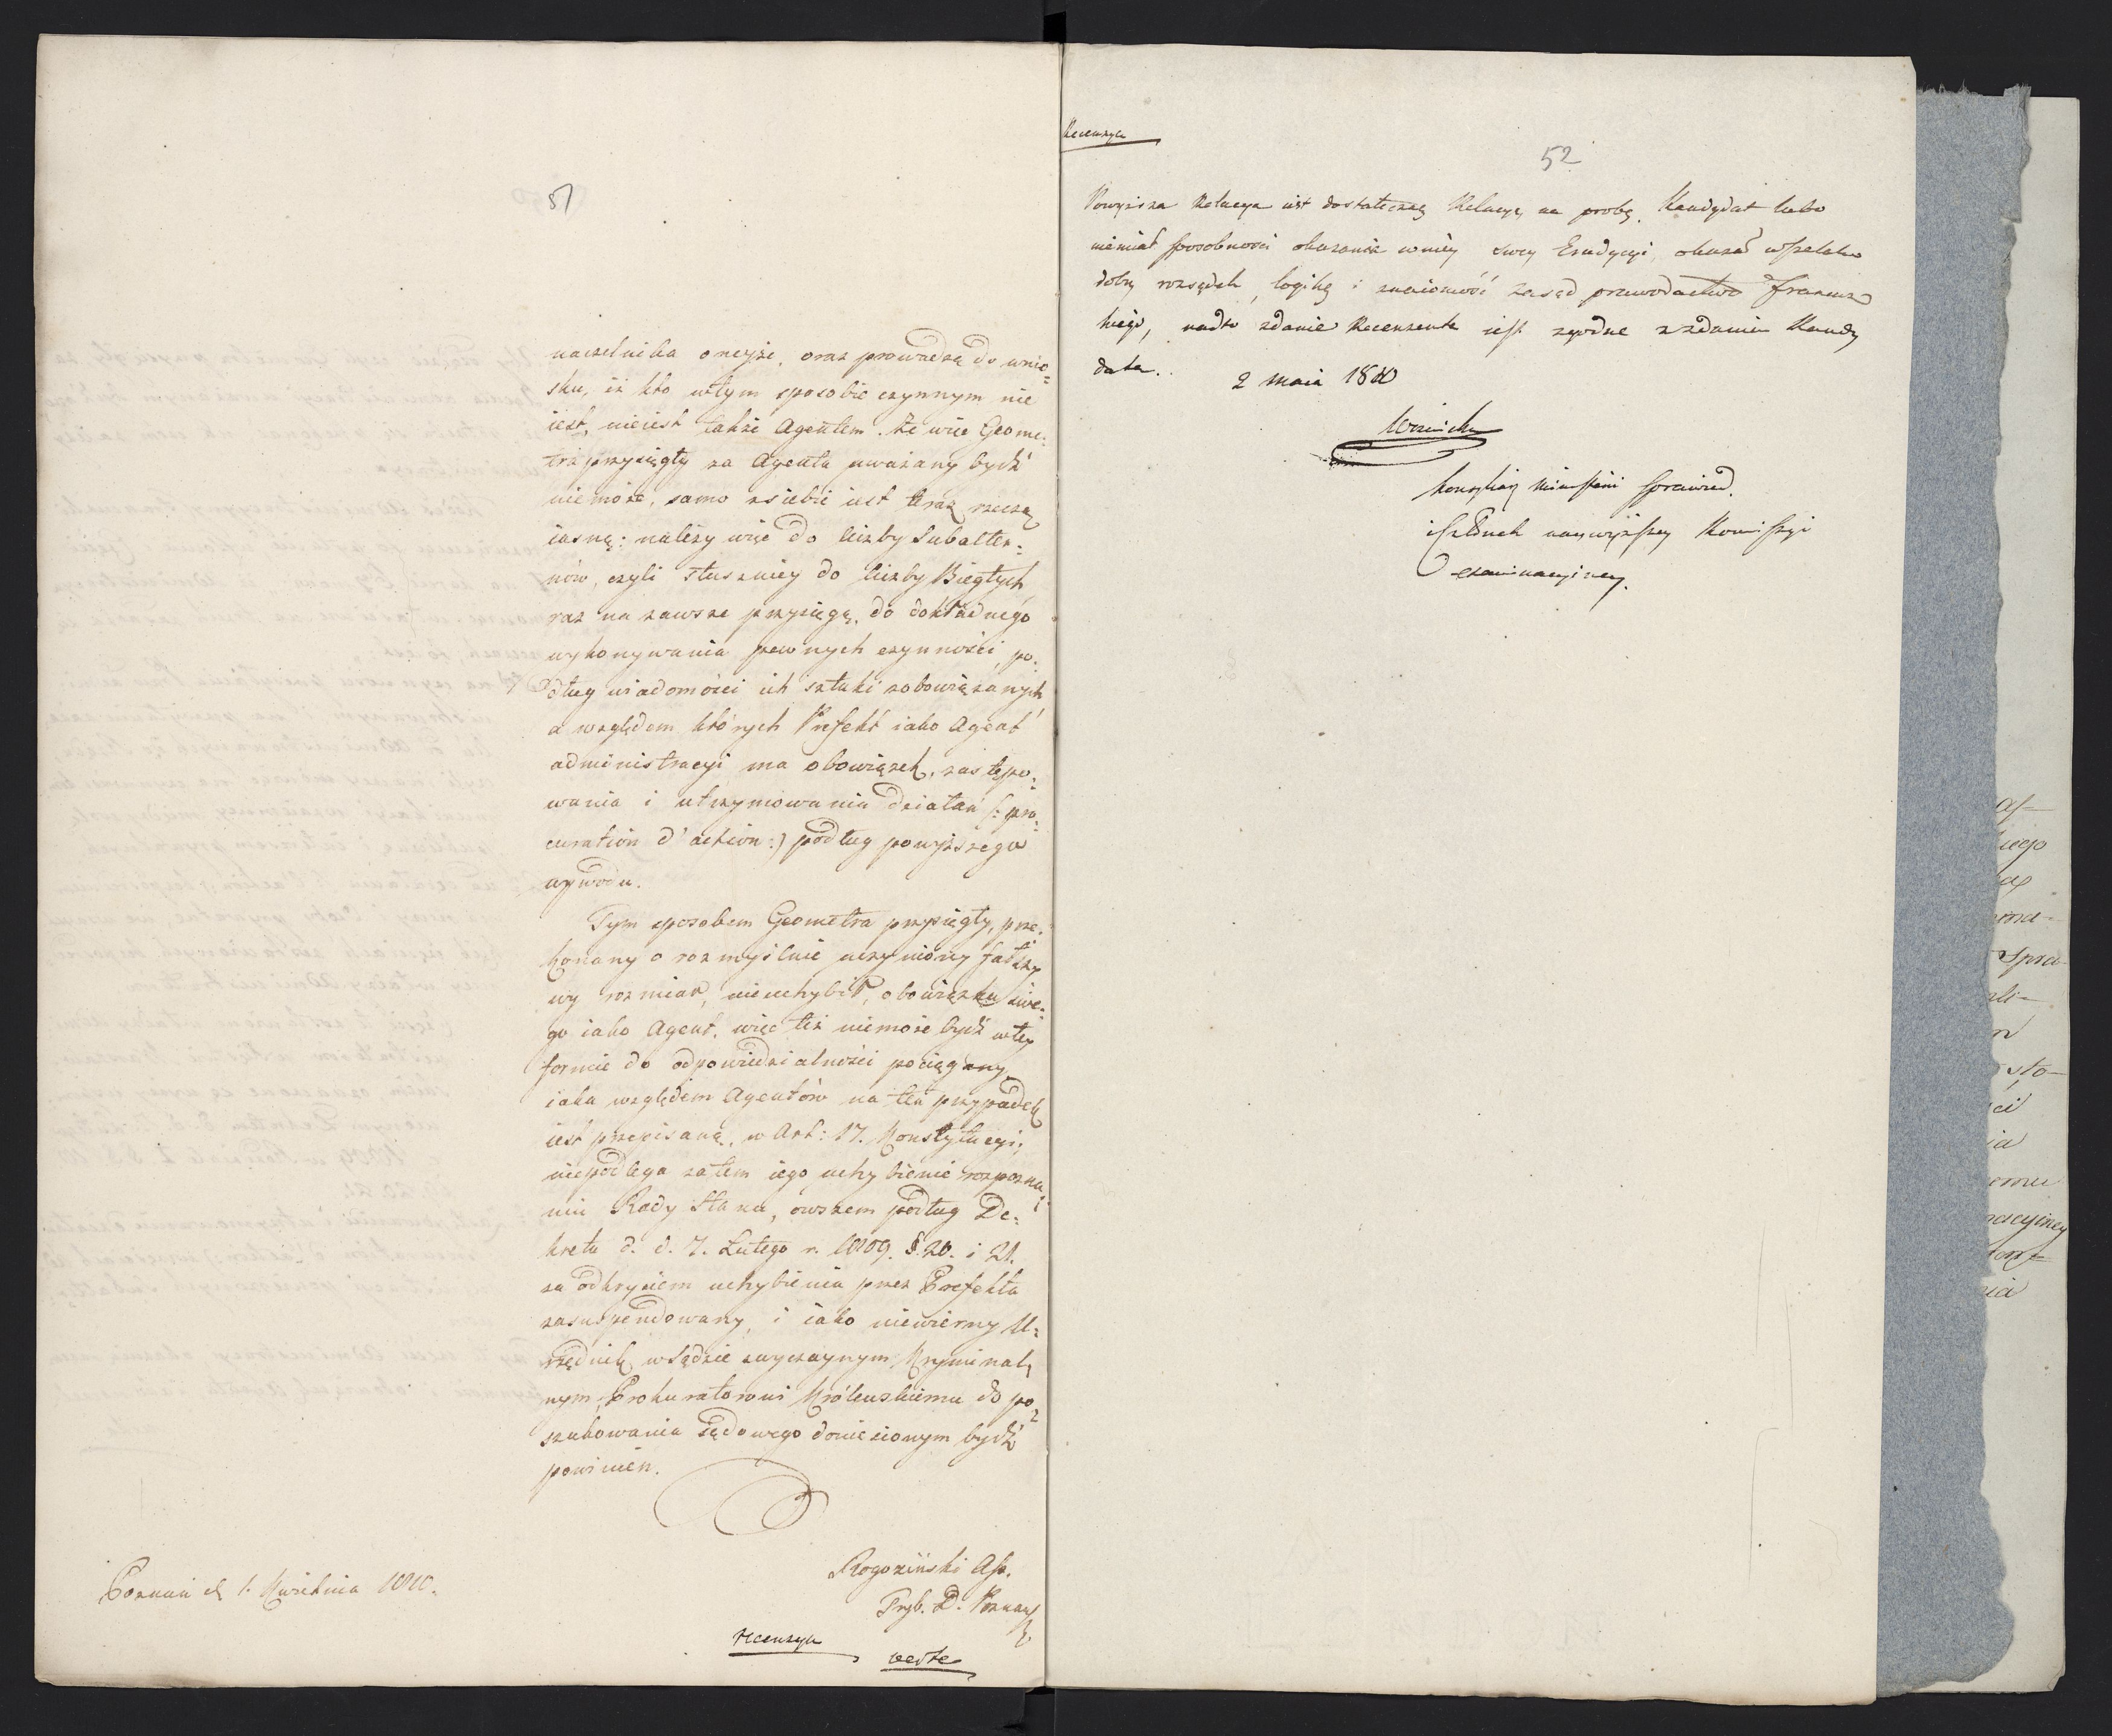 51
naczelnika oneyże, oraz prowadzą do wnio=
sku, iż kto w tym sposobie czynnym nie
iest, nie iest także Agentem. Że więc Geome=
tra przysięgły za Agenta uważany bydź
niemoże, samo z siebie iest teraz rzeczą
iasną: należy więc do liczby Subalter=
nów, czyli słuszniey do liczby Biegłych
raz na zawsze przysięgą, do dokładnego
wykonywania pewnych czynności, po=
dług wiadomości ich sztuki zobowiązanych,
a względem których Prefekt iako Agent
administracyi ma obowiązek, zastępo=
wania i utrzymowania działań (: pro=
curation d'action :) podług powyższego
wywodu.
Tym sposobem Geometra przysięgły, prze=
konany o rozmyślnie uczyniony fałszy
wy rozmiar, nieuchybił, obowiązku swe=
go iako Agent, więc też niemoże bydź w tey
formie do odpowiedzialności pociągany,
iaka względem Agentów na ten przypadek
iest przepisaną, w Art: 17. Konstytucyi;
niepodlega zatem iego uchybienie rozpozna=
niu Rady Stanu, owszem podług De=
kretu d. d. 7. Lutego r. 1809. §. 20. i 21.
za odkryciem uchybienia przez Prefekta
zasuspendowany, i iako niewierny U=
rzędnik w Sądzie zwyczaynym Kryminal=
nym, Prokuratorowi Królewskiemu do po=
szukowania sądowego doniesionym bydź
powinien.
Rogoziński Ass.
Tryb. D. Poznań
Poznań d. 1. Kwietnia 1810.
recenzya
verte
Recenzya
52
Powyższa Relacya iest dostateczną Relacyą na probę. Kandydat lubo
niemiał sposobności okazania w niey swey Erudycyi, okazał wszelako
dobry rozsądek, logikę i znaiomość zasad prawodactwa Francuz
kiego, nadto zdanie Recenzenta iest zgodne z zdaniem Kandy
data.
2 Maia 1810
Woznicki
Konsyliarz Ministerii Sprawied.
i Członek naywyższey Kommissyi
examinacyiney.